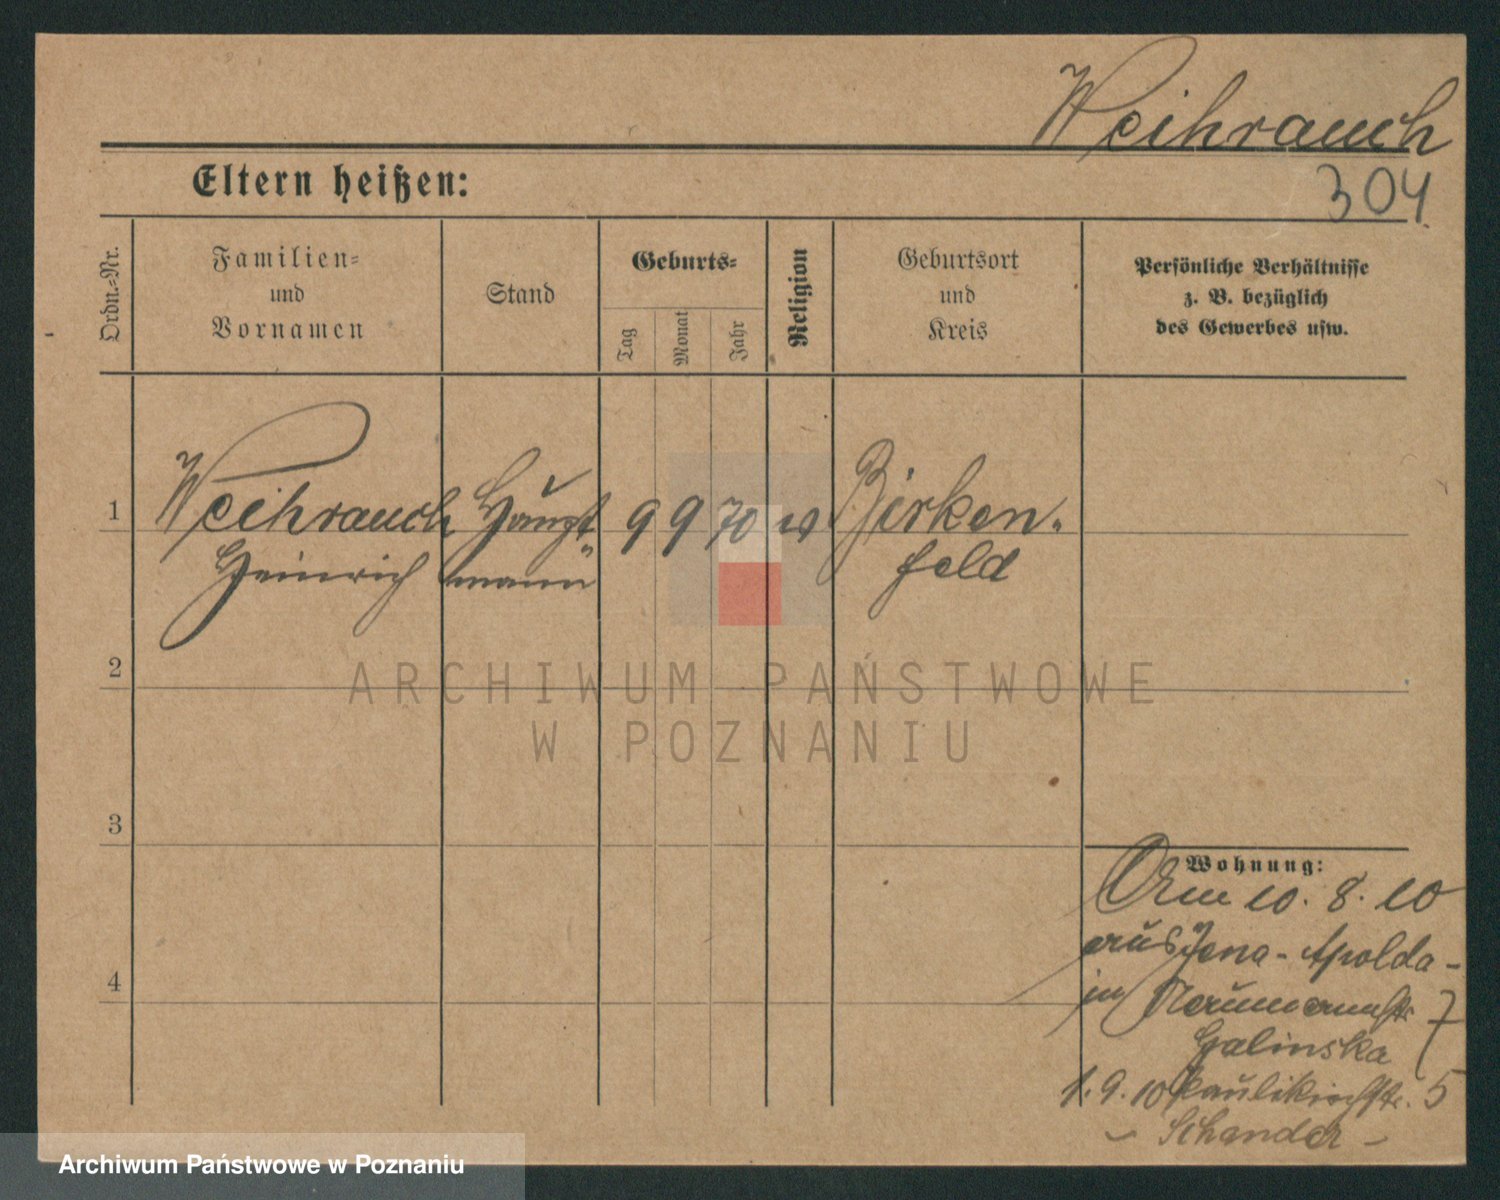 Weihrauch
304
Eltern heißen:
Ordn.-Nr.
Familien-
und
Vornamen
Stand
Geburts-
Tag
Monat
Jahr
Religion
Geburtsort
und
Kreis
Persönliche Verhältnisse
z. B. bezüglich
des Gewerbes usw.
1
Weihrauch Haupt 9 9 70 Birken-
Heinrich mann feld
2
ARCHIWUM PAŃSTWOWE
W POZNANIU
3
Wohnung:
10. 8. 10
aus Jena-Apolda-
in Naumannstr. 7
Galinska
4
1. 9. 10 Paulikirchstr. 5
- Schander -
Archiwum Państwowe w Poznaniu